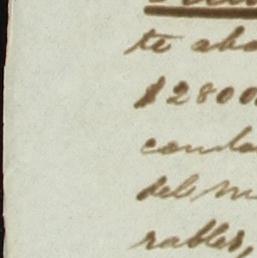 te abo
$2800
conda
del m
rables,